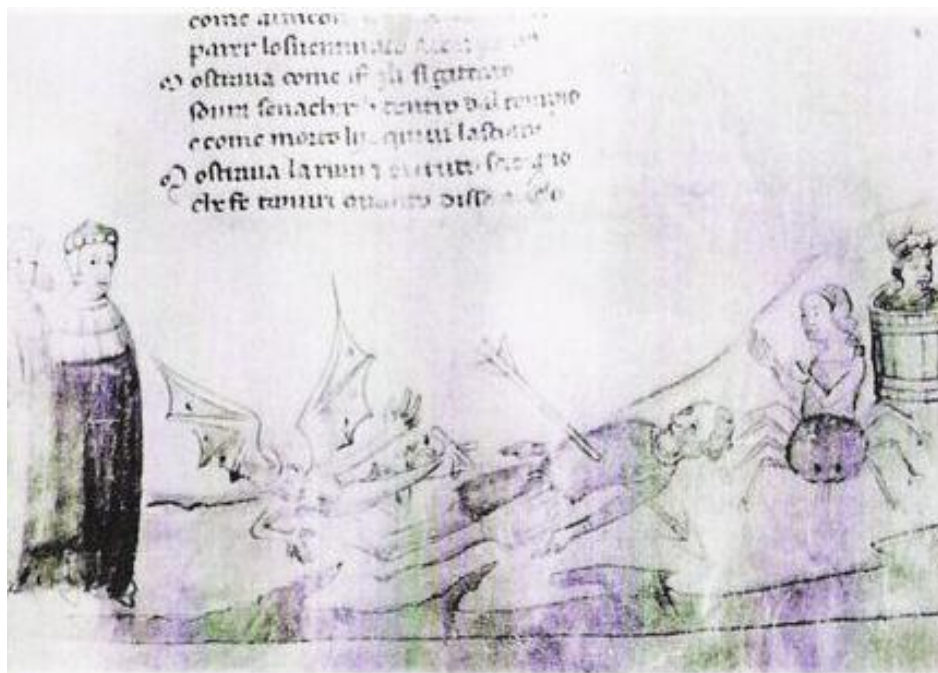 come
parer losuenturato
Mostraua come ifigli sigittaro
soura senacherib dentro dal tempio
e come morto lui quiui lasciaro
Mostraua la ruina
che fe tamiri quando disse